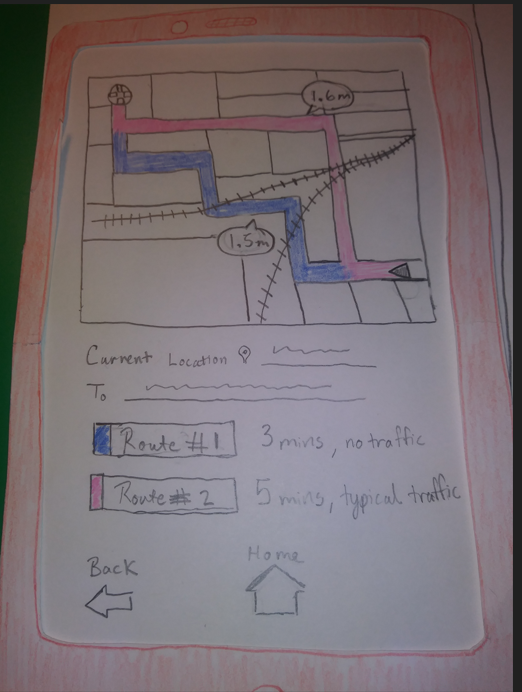 1.6m
1.5m
Current Location
To
Route #1 3 mins, no traffic
Route # 2 5 mins, typical traffic
Back Home